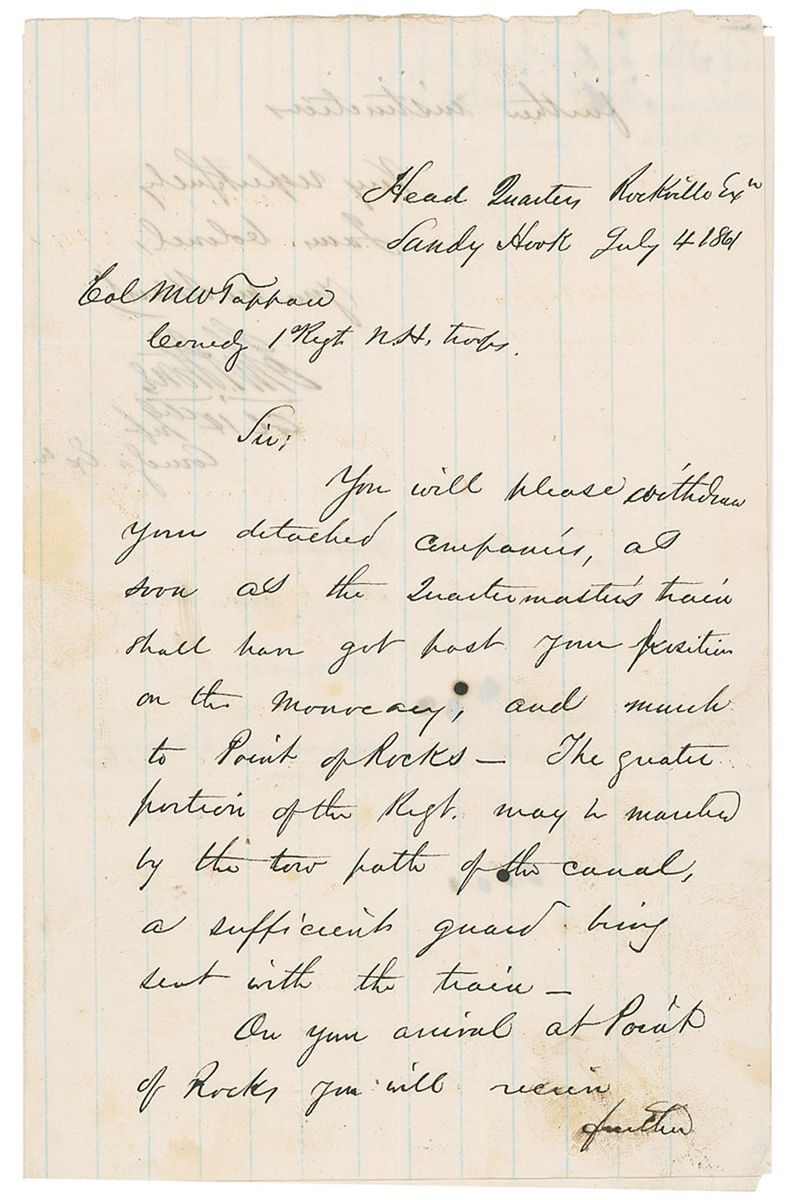 Head Quarters Rockville Exn
Sandy Hook July 4 1861
Col M W Tappan
Comdg 1st Regt N.H. troops.
Sir;
You will please withdraw
your detached companies, as
soon as the Quartermasters train
shall have got past your position
on the Monocacy, and march
to Point of Rocks — The greater
portion of the Regt. may be marched
by the tow path of the canal,
a sufficient guard being
sent with the train —
On your arrival at Point
of Rocks you will receive
further